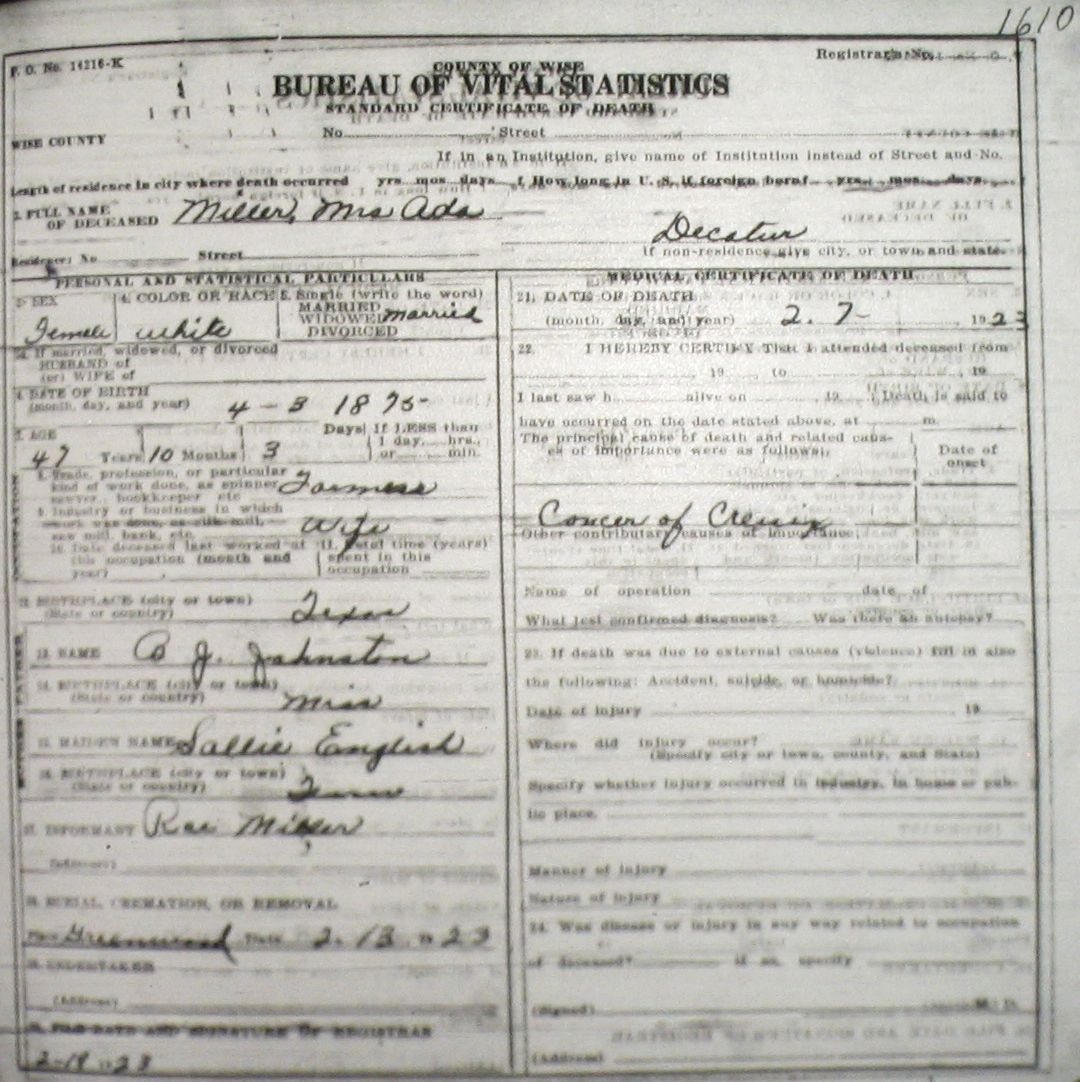 1610
F. O. No. 14216-K
Registrar's No.
COUNTY OF WISE
BUREAU OF VITAL STATISTICS
STANDARD CERTIFICATE OF DEATH
WISE COUNTY
No. Street
If in an Institution, give name of Institution instead of Street and No.
Length of residence in city where death occurred yrs. mos. days. How long in U. S. if foreign born? yrs. mos. days.
2. FULL NAME OF DECEASED Miller, Mrs Ada
Decatur
Residence: No. Street
If non-residence give city, or town and state.
PERSONAL AND STATISTICAL PARTICULARS
3. SEX 4. COLOR OR RACE 5. Single (write the word)
MARRIED
WIDOWED married
DIVORCED
Female white
If married, widowed, or divorced
HUSBAND of
(or) WIFE of
DATE OF BIRTH
(month, day, and year) 4 - 3 1875
AGE Days If LESS than
47 Years 10 Months 3 1 day, hrs.,
or min.
8. Trade, profession, or particular
kind of work done, as spinner Farmers
sawyer, bookkeeper etc
9. Industry or business in which
work was done, as silk mill, wife
saw mill, bank, etc.
10. Date deceased last worked at 11. Total time (years)
this occupation (month and spent in this
year) occupation
12. BIRTHPLACE (city or town)
(State or country) Texas
13. NAME B J. Johnston
14. BIRTHPLACE (city or town)
(State or country) Miss
15. MAIDEN NAME Sallie English
16. BIRTHPLACE (city or town)
(State or country)
17. INFORMANT Rae Miller
(Address)
18. BURIAL, CREMATION, OR REMOVAL
Place Greenwood Date 2. 13 19 23
19. UNDERTAKER
(Address)
20. FILE DATE AND SIGNATURE OF REGISTRAR
2-19 1923
MEDICAL CERTIFICATE OF DEATH
21. DATE OF DEATH
(month, day, and year) 2. 7- 1923
22. I HEREBY CERTIFY That I attended deceased from
19 to , 19
I last saw h alive on , 19 . Death is said to
have occurred on the date stated above, at m.
The principal cause of death and related caus-
es of importance were as follows: Date of
onset
Cancer of
Other contributary causes of importance
Name of operation date of
What test confirmed diagnosis? Was there an autopsy?
23. If death was due to external causes (violence) fill in also
the following: Accident, suicide, or homicide?
Date of injury 19
Where did injury occur?
(Specify city or town, county, and State)
Specify whether injury occurred in industry, in home or pub-
lic place.
Manner of injury
Nature of injury
24. Was disease or injury in any way related to occupation
of deceased? if so, specify
(Signed) M. D.
(Address)